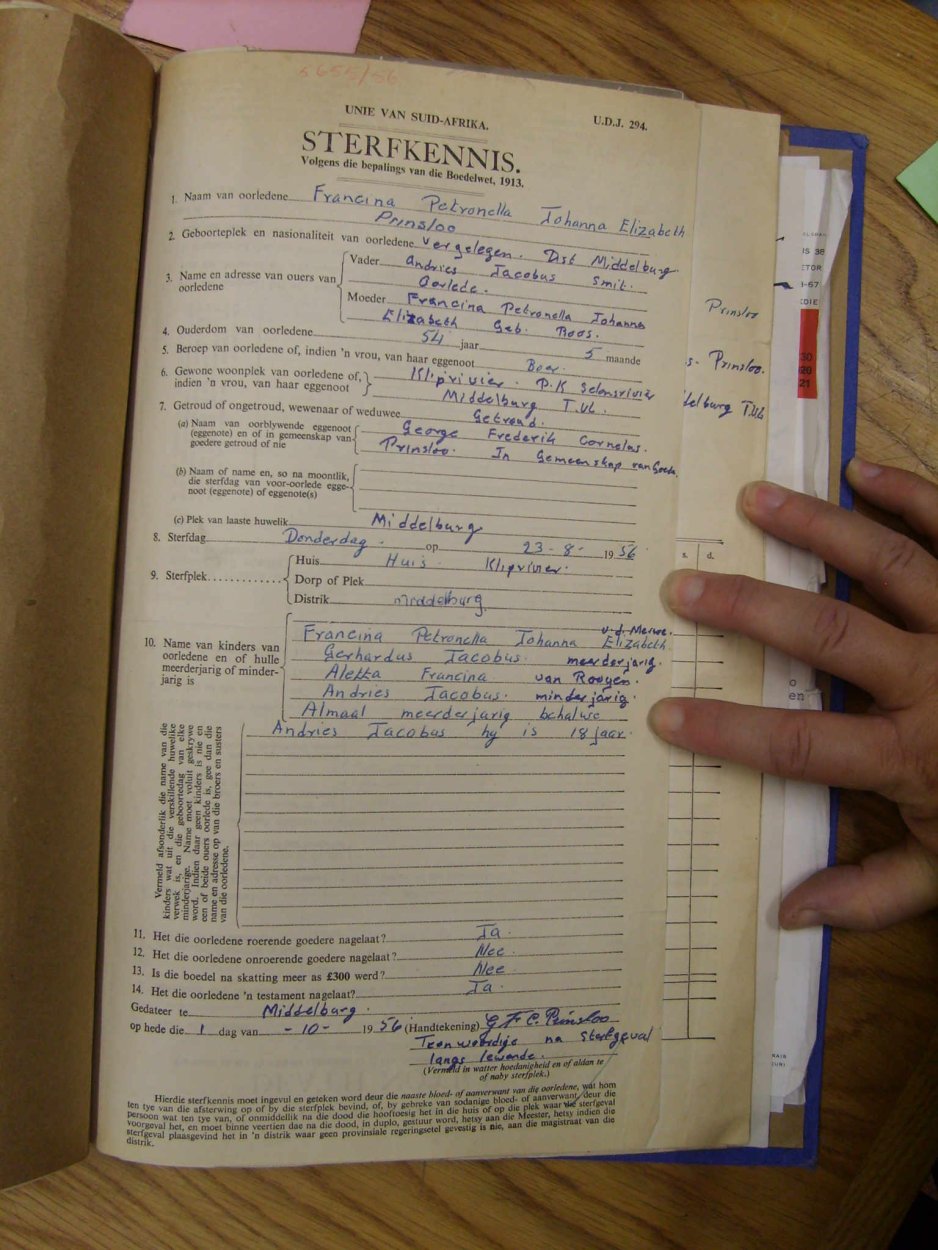 5655/56
UNIE VAN SUID-AFRIKA.
U.D.J. 294.
STERFKENNIS.
Volgens die bepalings van die Boedelwet, 1913.
1. Naam van oorledene Francina Petronella Johanna Elizabeth
Prinsloo
2. Geboorteplek en nasionaliteit van oorledene Vergelegen. Dist Middelburg
3. Name en adresse van ouers van oorledene
Vader Andries Jacobus Smit.
Oorlede.
Moeder Francina Petronella Johanna
Elizabeth Geb. Roos.
4. Ouderdom van oorledene 54 jaar 5 maande
5. Beroep van oorledene of, indien 'n vrou, van haar eggenoot Boer.
6. Gewone woonplek van oorledene of,
indien 'n vrou, van haar eggenoot
Kliprivier. P.K Selonsrivier
Middelburg T.vl.
7. Getroud of ongetroud, wewenaar of weduwee Getroud.
(a) Naam van oorblywende eggenoot
(eggenote) en of in gemeenskap van
goedere getroud of nie
George Frederik Cornelus.
Prinsloo. In Gemeenskap van Goede.
(b) Naam of name en, so na moontlik,
die sterfdag van voor-oorlede egge-
noot (eggenote) of eggenote(s)
(c) Plek van laaste huwelik Middelburg
8. Sterfdag Donderdag. op 23-8- 1956
9. Sterfplek
Huis Huis. Kliprivier.
Dorp of Plek
Distrik middelburg
10. Name van kinders van
oorledene en of hulle
meerderjarig of minder-
jarig is
v.d. Merwe.
Francina Petronella Johanna Elizabeth
Gerhardus Jacobus. meerderjarig.
Aletta Francina van Rooyen.
Andries Jacobus. minderjarig.
Almaal meerderjarig behalwe
Andries Jacobus hy is 18 jaar.
Vermeld afsonderlik die name van die
kinders wat uit die verskillende huwelike
verwek is, en die geboortedag van elke
minderjarige. Name moet voluit geskrywe
word. Indien daar geen kinders is nie en
een of beide ouers oorlede is, gee dan die
name en adresse op van die broers en susters
van die oorledene.
11. Het die oorledene roerende goedere nagelaat? Ja.
12. Het die oorledene onroerende goedere nagelaat? Nee.
13. Is die boedel na skatting meer as £300 werd? Nee.
14. Het die oorledene 'n testament nagelaat? Ja.
Gedateer te Middelburg.
op hede die 1 dag van -10- 1956 (Handtekening) G F C. Prinsloo
Teenwoordig na sterfgeval
langs lewende.
(Vermeld in watter hoedanigheid en of aldan te
of naby sterfplek.)
Hierdie sterfkennis moet ingevul en geteken word deur die naaste bloed- of aanverwant van die oorledene, wat hom
ten tye van die afsterwing op of by die sterfplek bevind, of, by gebreke van sodanige bloed- of aanverwant, deur die
persoon wat ten tye van, of onmiddellik na die dood die hooftoesig het in die huis of op die plek waar die sterfgeval
voorgeval het, en moet binne veertien dae na die dood, in duplo, gestuur word, hetsy aan die Meester, hetsy indien die
sterfgeval plaasgevind het in 'n distrik waar geen provinsiale regeringsetel gevestig is nie, aan die magistraat van die
distrik.
Prinsloo
s- Prinsloo.
delburg T.vl
s. d.